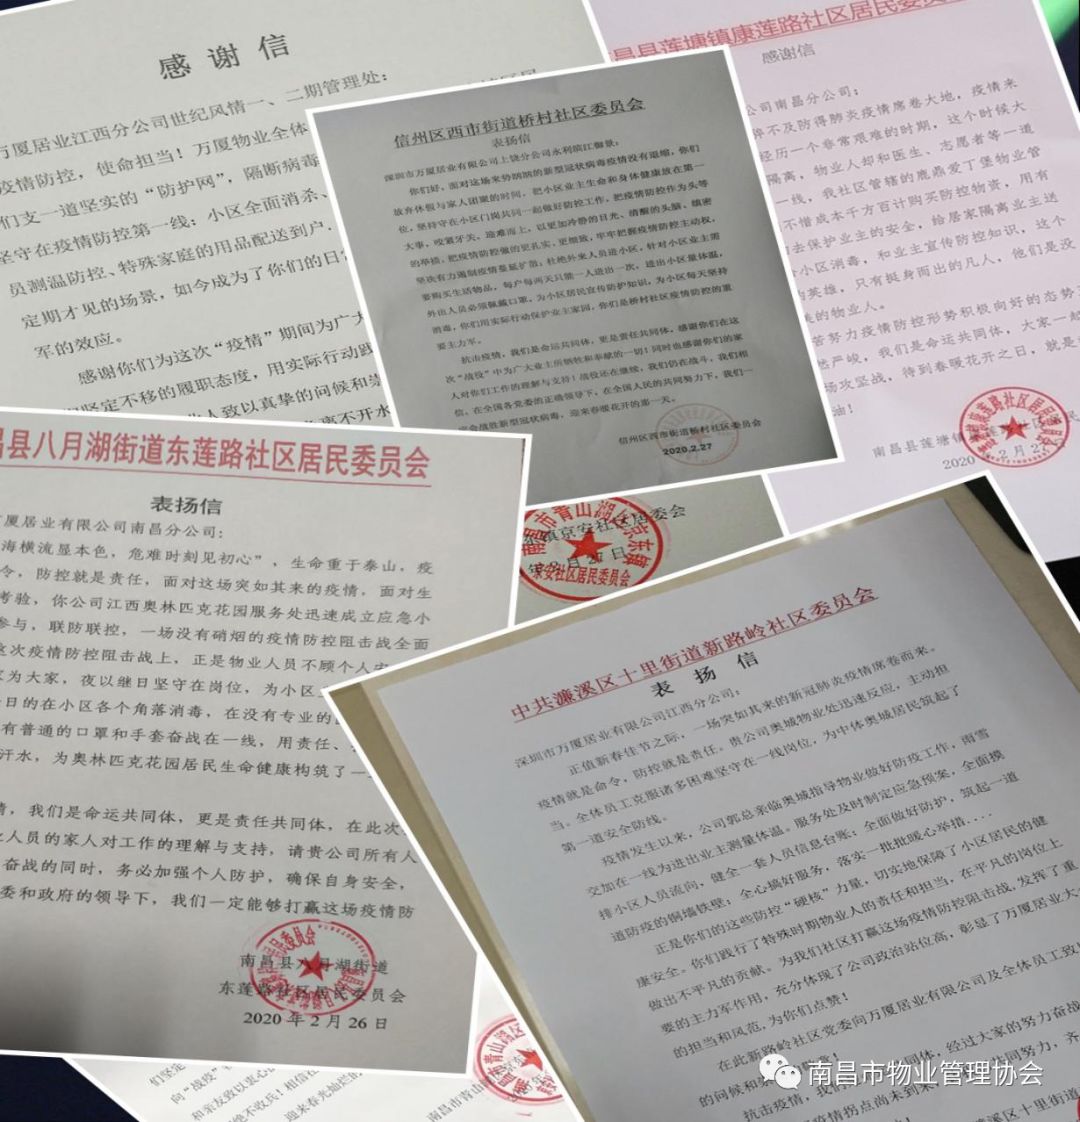 感谢信
万厦居业江西分公司世纪风情一、二期管理处：
疫情防控，使命担当！万厦物业全体
们支一道坚实的“防护网”，隔断病毒
坚守在疫情防控第一线：小区全面消杀、
员测温防控、特殊家庭的用品配送到户．
定期才见的场景，如今成为了你们的日常
军的效应。
感谢你们为这次“疫情”期间为广大
坚定不移的履职态度，用实际行动践
人致以真挚的问候和崇
离不开水
信州区西市街道桥村社区委员会
表扬信
深圳市万厦居业有限公司上饶分公司永利滨江御景：
你们好，面对这场来势汹汹的新型冠状病毒疫情没有退缩，你们
放弃休假与家人团聚的时间，把小区业主生命和身体健康放在第一
位，坚持守在小区门岗共同一起做好防控工作，把疫情防控作为头等
大事，咬紧牙关，迎难而上，以更加冷静的目光、清醒的头脑、缜密
的举措，把疫情防控做的更扎实，更细致，牢牢把握疫情防控主动权，
坚决有力遏制疫情蔓延扩散，杜绝外来人员进小区，针对小区业主需
要购买生活物品，每户每两天只能一人进出一次，进出小区量体温，
外出人员必须佩戴口罩，为小区居民宣传防护知识，为小区每天坚持
消毒，你们用实际行动保护业主家园，你们是桥村社区疫情防控的重
要主力军。
抗击疫情，我们是命运共同体，更是责任共同体，感谢你们在这
次“战役”中为广大业主所牺牲和奉献的一切！同时也感谢你们的家
人对你们工作的理解与支持！战役还在继续，我们仍在战斗，我们相
信，在全国各党委的正确领导下，在全国人民的共同努力下，我们一
定会战胜新型冠状病毒，迎来春暖花开的那一天。
信州区西市街道桥村社区委员会
2020.2.27
南昌县莲塘镇康莲路社区居民委员
感谢信
公司南昌分公司：
猝不及防得肺炎疫情席卷大地，疫情来
经历一个非常艰难的时期，这个时候大
隔离，物业人却和医生、志愿者等一道
一线，我社区管辖的鹿鼎爱丁堡物业管
不惜成本千方百计购买防控物资，用有
去保护业主的安全，给居家隔离业主送
小区消毒，和业主宣传防控知识，这个
英雄，只有挺身而出的凡人，他们是没
的物业人。
苦努力疫情防控形势积极向好的态势
然严峻，我们是命运共同体，大家一起
场攻坚战，待到春暖花开之日，就是
油！
南昌县莲塘镇
2020 2月27
昌县八月湖街道东莲路社区居民委员会
表扬信
万厦居业有限公司南昌分公司：
海横流显本色，危难时刻见初心”，生命重于泰山，疫
令，防控就是责任，面对这场突如其来的疫情，面对生
考验，你公司江西奥林匹克花园服务处迅速成立应急小
参与，联防联控，一场没有硝烟的疫情防控阻击战全面
这次疫情防控阻击战上，正是物业人员不顾个人安
为大家，夜以继日坚守在岗位，为小区
日的在小区各个角落消毒，在没有专业的
有普通的口罩和手套奋战在一线，用责任、
汗水，为奥林匹克花园居民生命健康构筑了一
情，我们是命运共同体，更是责任共同体，在此次
业人员的家人对工作的理解与支持，请贵公司所有人
奋战的同时，务必加强个人防护，确保自身安全，
委和政府的领导下，我们一定能够打赢这场疫情防
南昌县八月湖街道
东莲路社区居民委员会
2020年2月26日
东镇京安社区居委会
2月27日
南昌市青山湖
京东镇
京安社区居民委员会
中共濂溪区十里街道新路岭社区委员会
表扬信
深圳市万厦居业有限公司江西分公司：
正值新春佳节之际，一场突如其来的新冠肺炎疫情席卷而来。
疫情就是命令，防控就是责任。贵公司奥城物业处迅速反应，主动担
当。全体员工克服诸多困难坚守在一线岗位，为中体奥城居民筑起了
第一道安全防线。
疫情发生以来，公司郭总亲临奥城指导物业做好防疫工作，雨雪
交加在一线为进出业主测量体温。服务处及时制定应急预案，全面摸
排小区人员流向，健全一套人员信息台账，全面做好防护，筑起一道
道防疫的铜墙铁壁；全心搞好服务，落实一批批暖心举措....
正是你们的这些防控“硬核”力量，切实地保障了小区居民的健
康安全。你们践行了特殊时期物业人的责任和担当，在平凡的岗位上
做出不平凡的贡献。为我们社区打赢这场疫情防控阻击战，发挥了重
要的主力军作用，充分体现了公司政治站位高，彰显了万厦居业大
的担当和风范，为你们点赞！
在此新路岭社区党委向万厦居业有限公司及全体员工致以
的问候和
抗击疫情，我们
同体，经过大家的努力奋战
疫情拐点尚未到来
共同努力，齐
濂溪区十里街道
们坚定
向“战疫”
和亲友致以衷心的
绝不收兵！相信在
迎来春光灿烂的
南昌市青山
南昌市物业管理协会